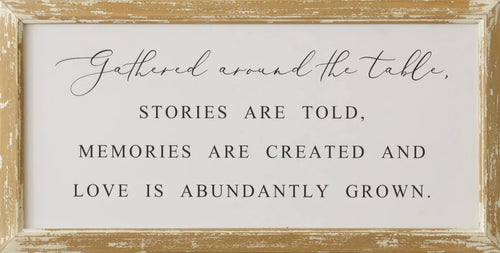 Gathered around the table,
STORIES ARE TOLD,
MEMORIES ARE CREATED AND
LOVE IS ABUNDANTLY GROWN.